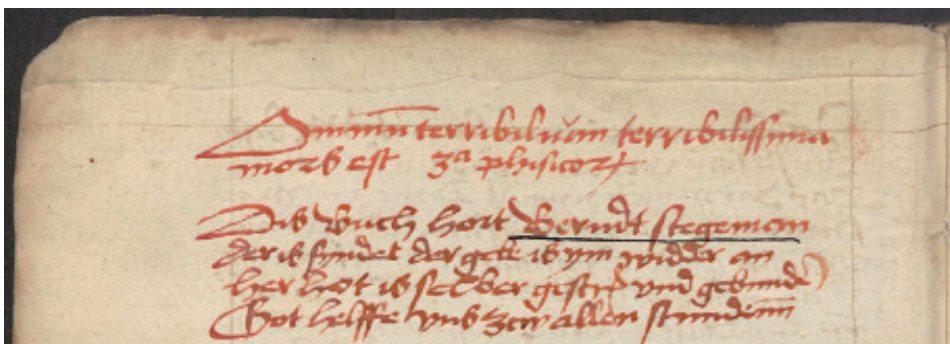 Omniū terribiliũm terribilissima
mors est 3ᵃ phisicoꝝ
Dis buch hort Berndt stegeman
der is fyndet der gebe is ym widder an
her hot is selber gescrꝭ vnd gebunde
Got helffe vns zcw allen stunden